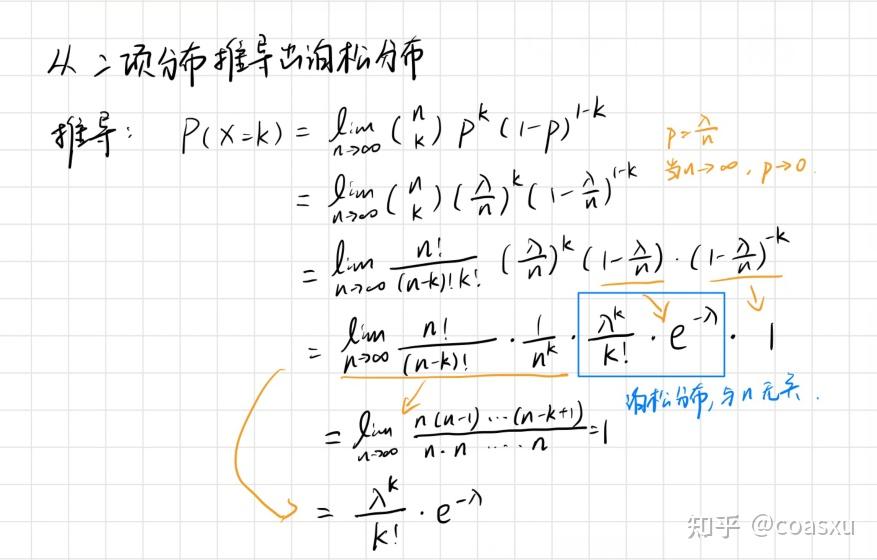 从二项分布推导出泊松分布
推导: P(X=k) = lim n→∞ (n k) p^k (1-p)^{1-k}
p = λ/n
当n→∞, p→0.
= lim n→∞ (n k) (λ/n)^k (1-λ/n)^{1-k}
= lim n→∞ n!/((n-k)!k!) (λ/n)^k (1-λ/n) · (1-λ/n)^{-k}
= lim n→∞ n!/(n-k)! · 1/n^k · λ^k/k! · e^{-λ} · 1
泊松分布, 与n无关.
= lim n→∞ n(n-1)···(n-k+1)/(n·n ···· n) = 1
= λ^k/k! · e^{-λ}
知乎 @coasxu